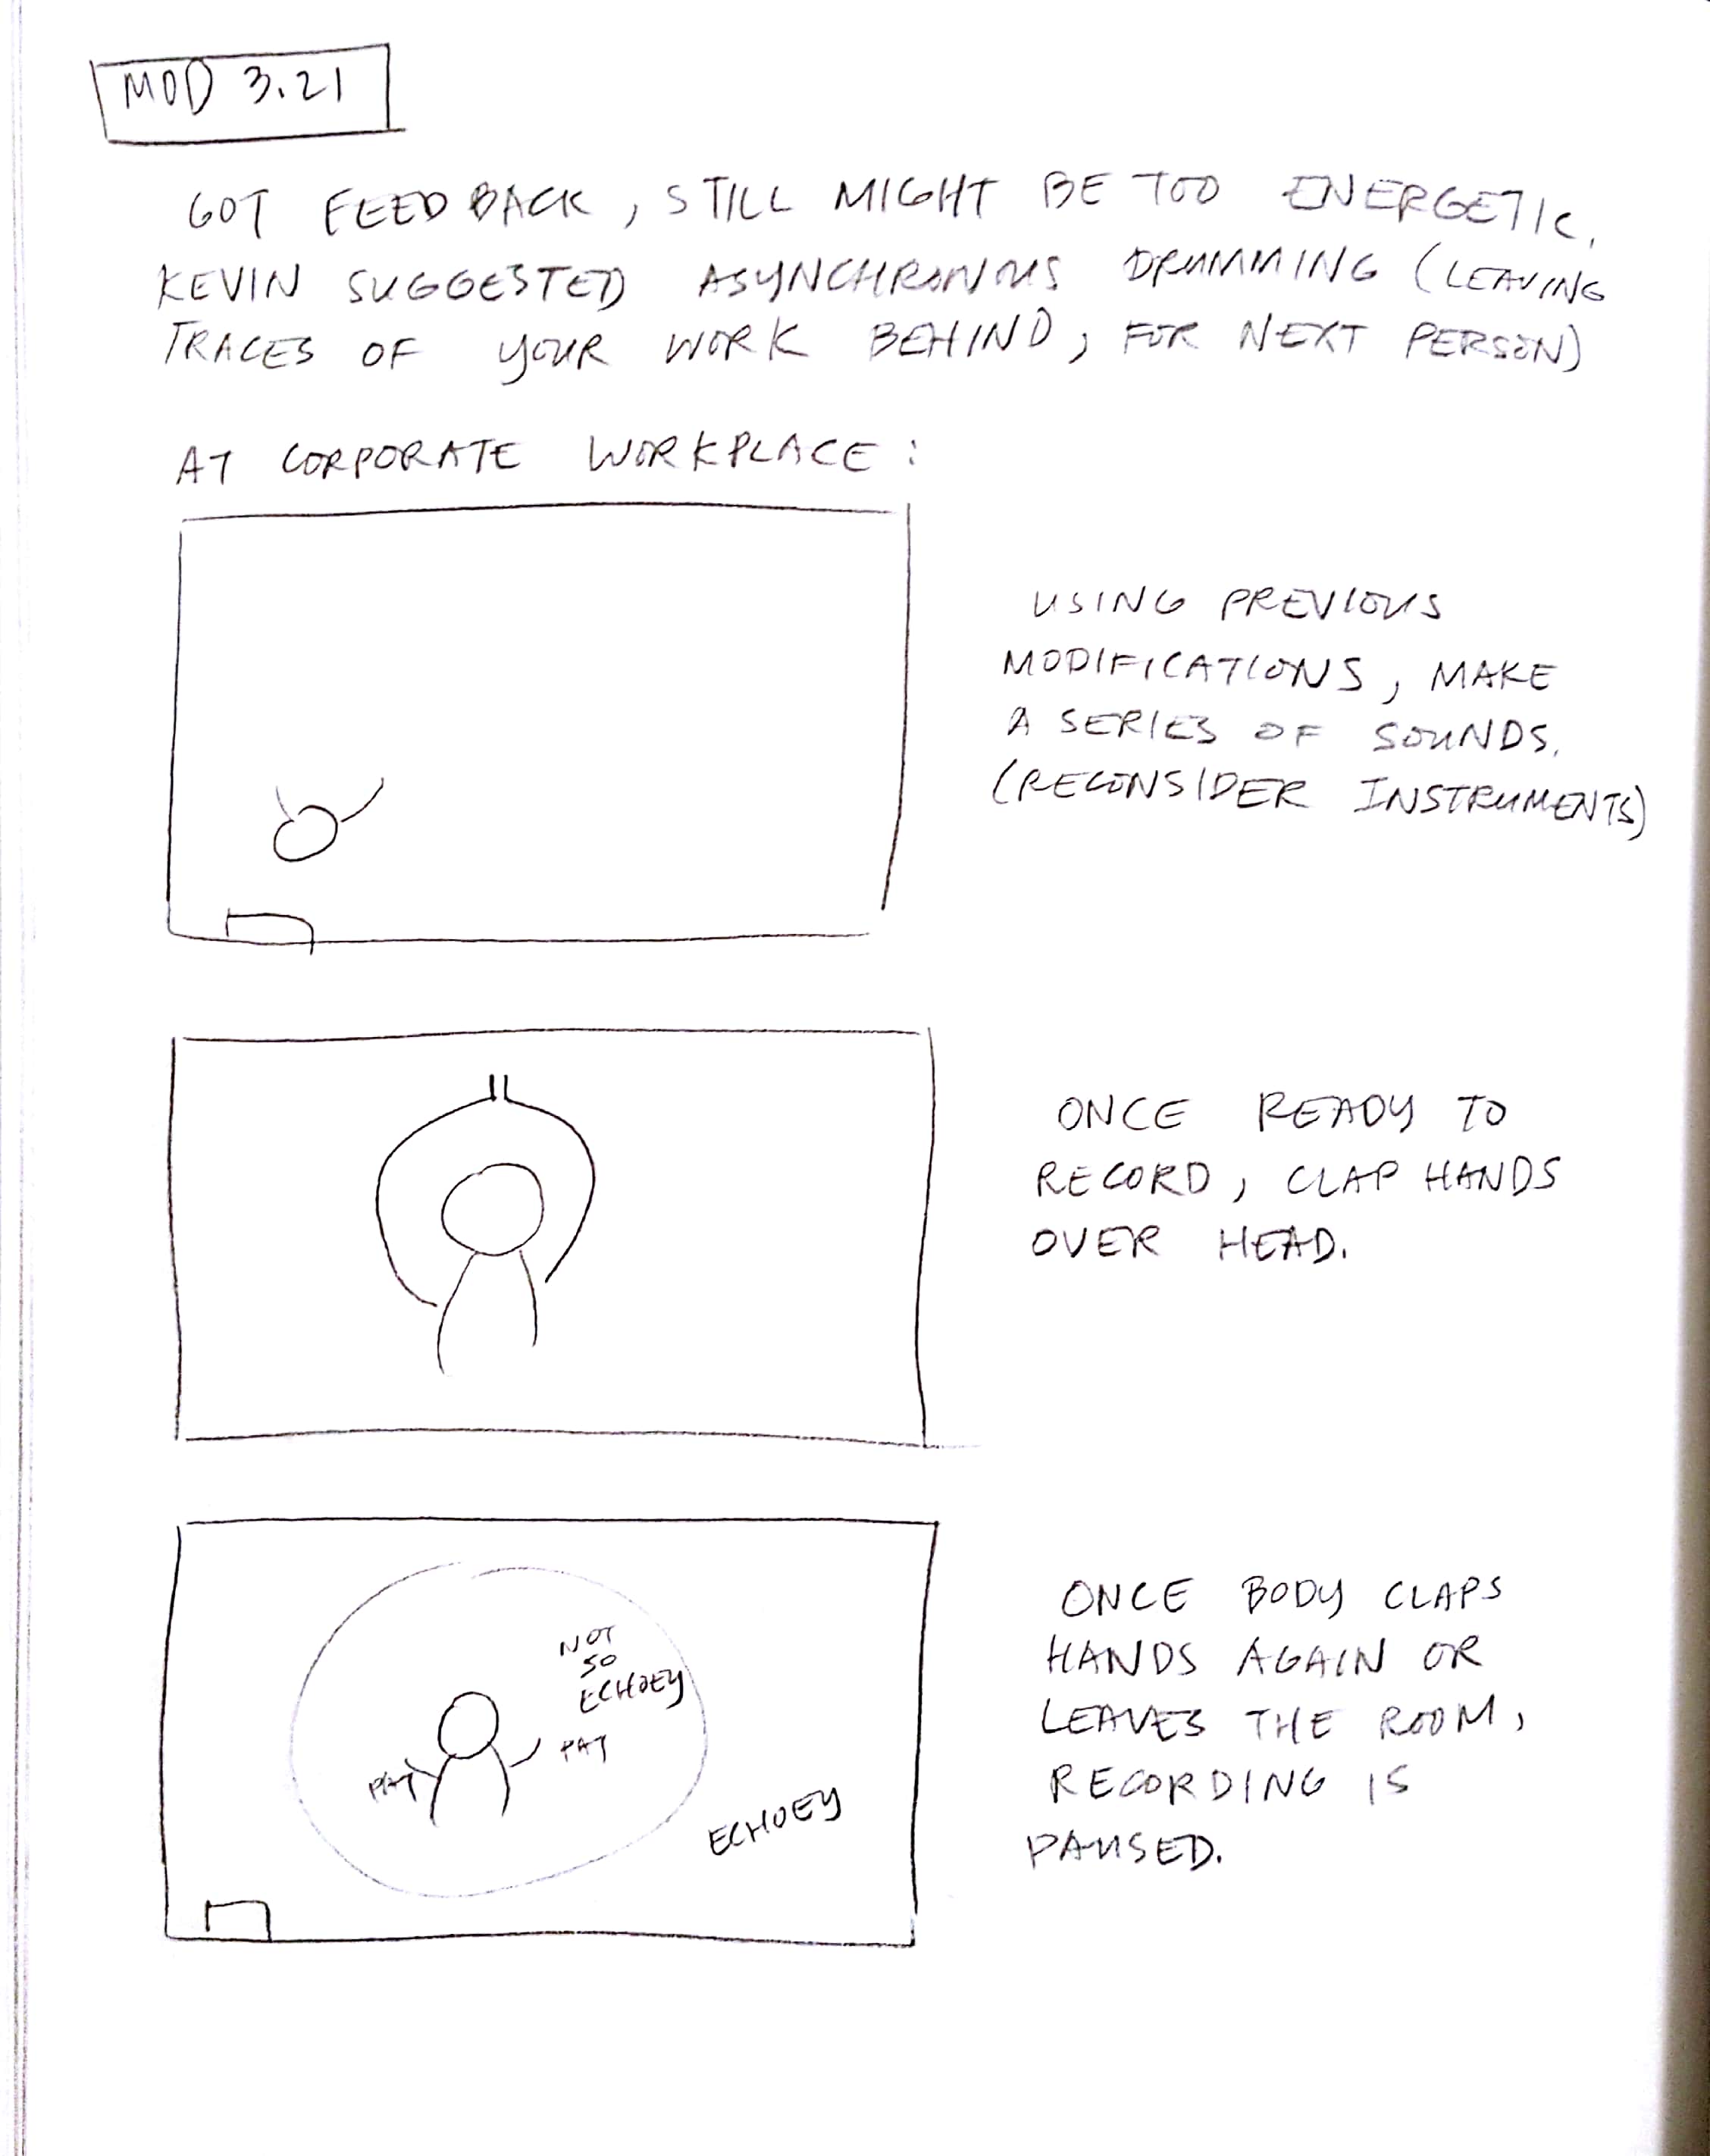 MOD 3.21
GOT FEEDBACK, STILL MIGHT BE TOO ENERGETIC.
KEVIN SUGGESTED ASYNCHRONOUS DRUMMING (LEAVING
TRACES OF YOUR WORK BEHIND, FOR NEXT PERSON)
AT CORPORATE WORKPLACE:
USING PREVIOUS
MODIFICATIONS, MAKE
A SERIES OF SOUNDS.
(RECONSIDER INSTRUMENTS)
ONCE READY TO
RECORD, CLAP HANDS
OVER HEAD.
NOT
SO
ECHOEY
PAT
PAT
ECHOEY
ONCE BODY CLAPS
HANDS AGAIN OR
LEAVES THE ROOM,
RECORDING IS
PAUSED.